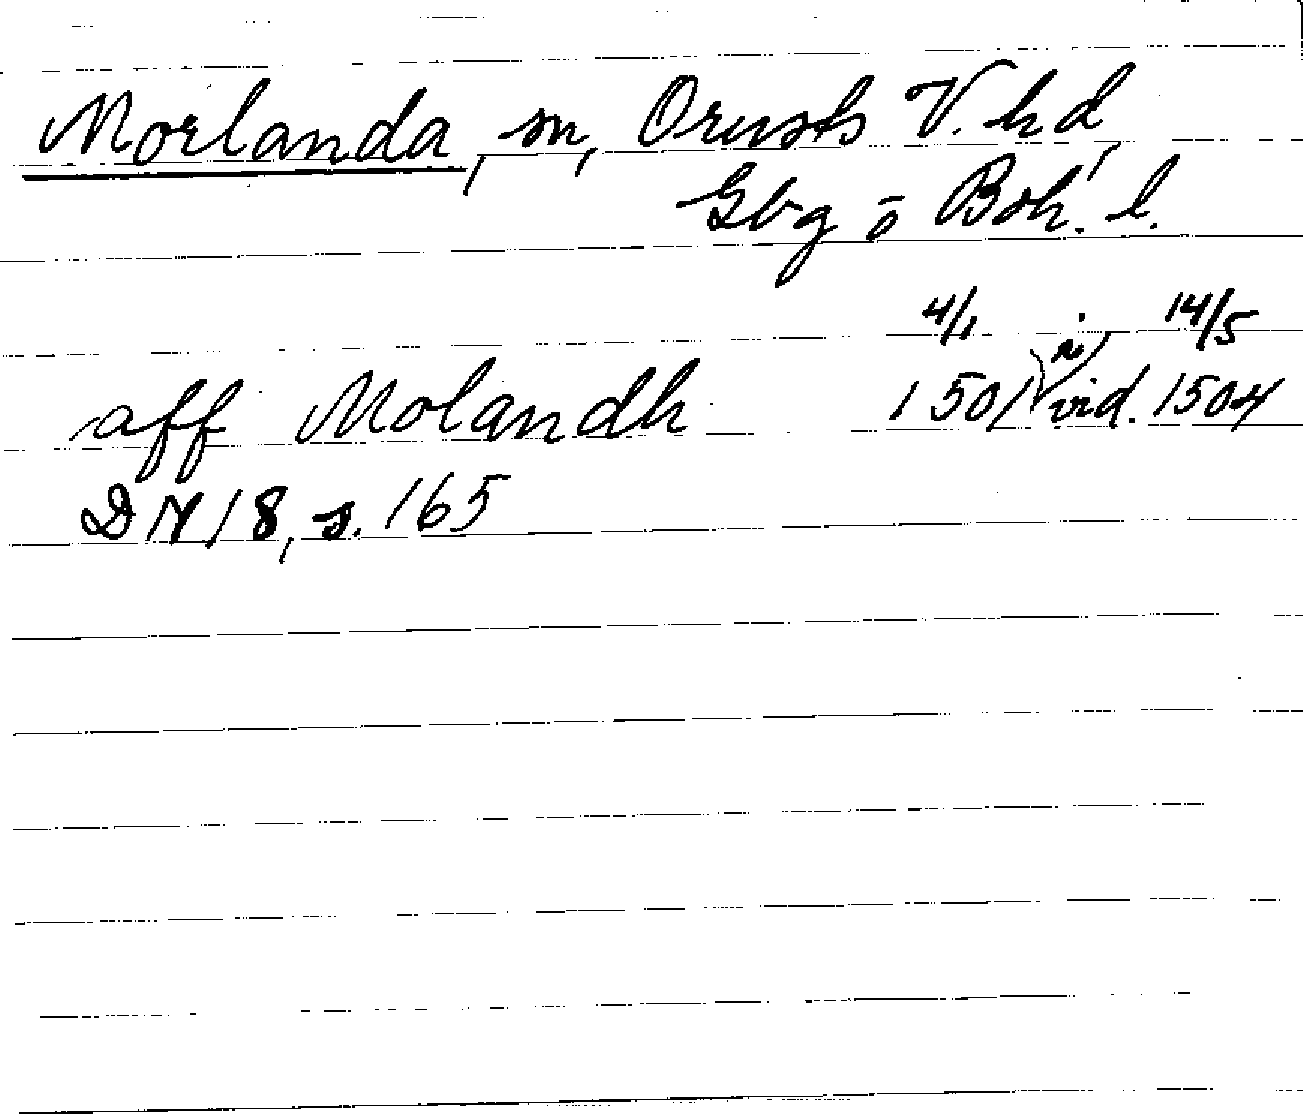 Morlanda, sn, Orusts V. hd,
Gbg o Boh. l.
4/1 i 14/5
aff Molandh 1501 vid. 1504
DN 18, s. 165